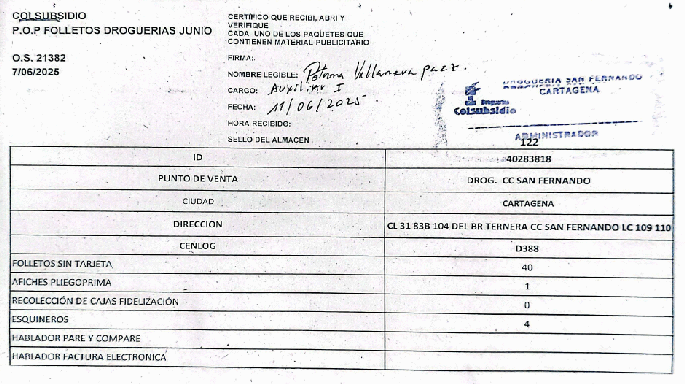 COLSUBSIDIO
P.O.P FOLLETOS DROGUERIAS JUNIO
O.S. 21382
7/06/2025
CERTIFICO QUE RECIBI, ABRI Y
VERIFIQUE
CADA UNO DE LOS PAQUETES QUE
CONTIENEN MATERIAL PUBLICITARIO
FIRMA:
NOMBRE LEGIBLE: Villanueva Paez.
CARGO: Auxiliar I
FECHA: 11/06/2025
HORA RECIBIDO:
SELLO DEL ALMACEN
DROGUERIA SAN FERNANDO
CARTAGENA
Colsubsidio
ADMINISTRADOR
122
ID 40283818
PUNTO DE VENTA DROG. CC SAN FERNANDO
CIUDAD CARTAGENA
DIRECCION CL 31 83B 104 DEL BR TERNERA CC SAN FERNANDO LC 109 110
CENLOG D388
FOLLETOS SIN TARJETA 40
AFICHES PLIEGOPRIMA 1
RECOLECCIÓN DE CAJAS FIDELIZACIÓN 0
ESQUINEROS 4
HABLADOR PARE Y COMPARE
HABLADOR FACTURA ELECTRONICA